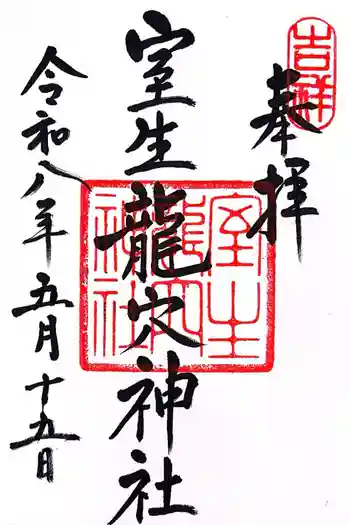 吉祥
奉拝
室生龍穴神社
室生龍穴神社
令和八年五月十五日